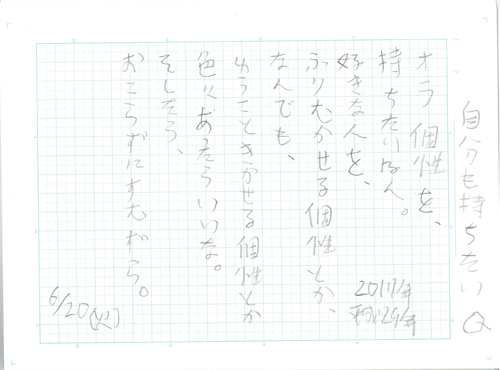 自分も持ちたい Q
オラ 個性を、
持ちたいほん。
好きな人を、
ふりむかせる個性とか、
なんでも、
ゆうこときかせる個性とか
色々あったらいいな。
そしたら、
おこらずにすむがら。
2017年
平成29年
6/20(火)